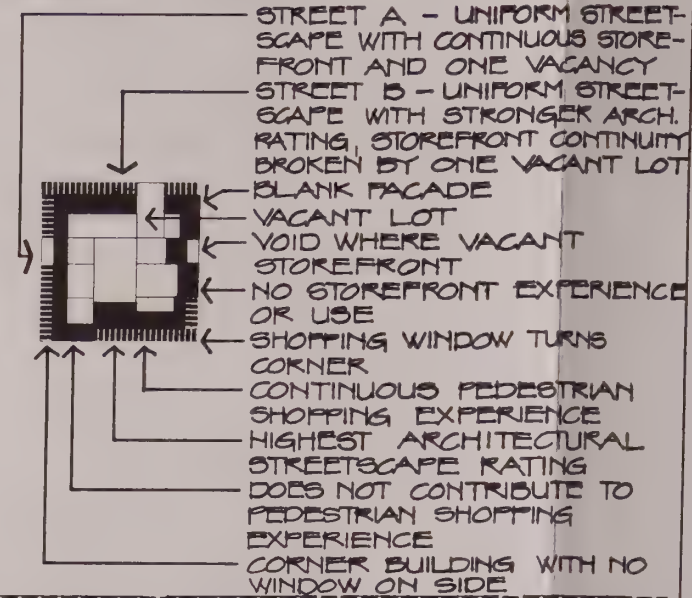 STREET A - UNIFORM STREET-
SCAPE WITH CONTINUOUS STORE-
FRONT AND ONE VACANCY
STREET B - UNIFORM STREET-
SCAPE WITH STRONGER ARCH.
RATING, STOREFRONT CONTINUITY
BROKEN BY ONE VACANT LOT
BLANK FACADE
VACANT LOT
VOID WHERE VACANT
STOREFRONT
NO STOREFRONT EXPERIENCE
OR USE
SHOPPING WINDOW TURNS
CORNER
CONTINUOUS PEDESTRIAN
SHOPPING EXPERIENCE
HIGHEST ARCHITECTURAL
STREETSCAPE RATING
DOES NOT CONTRIBUTE TO
PEDESTRIAN SHOPPING
EXPERIENCE
CORNER BUILDING WITH NO
WINDOW ON SIDE